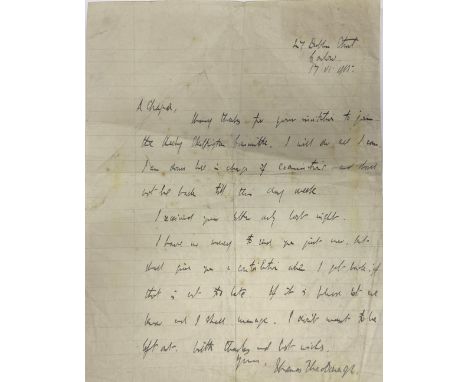 27 Dublin Street
Carlow
17. VI. 1915.
A Chara,
Many thanks for your invitation to join
the Sheehy Skeffington Committee. I will do all I can.
I am down here in charge of examinations and shall
not be back till this day week
I received your letter only last night.
I have no money to send you just now, but
shall give you a contribution when I get back, if
that is not too late. If it is please let me
know and I shall manage. I don't want to be
left out. With thanks and best wishes.
Yours,
Thomas MacDonagh